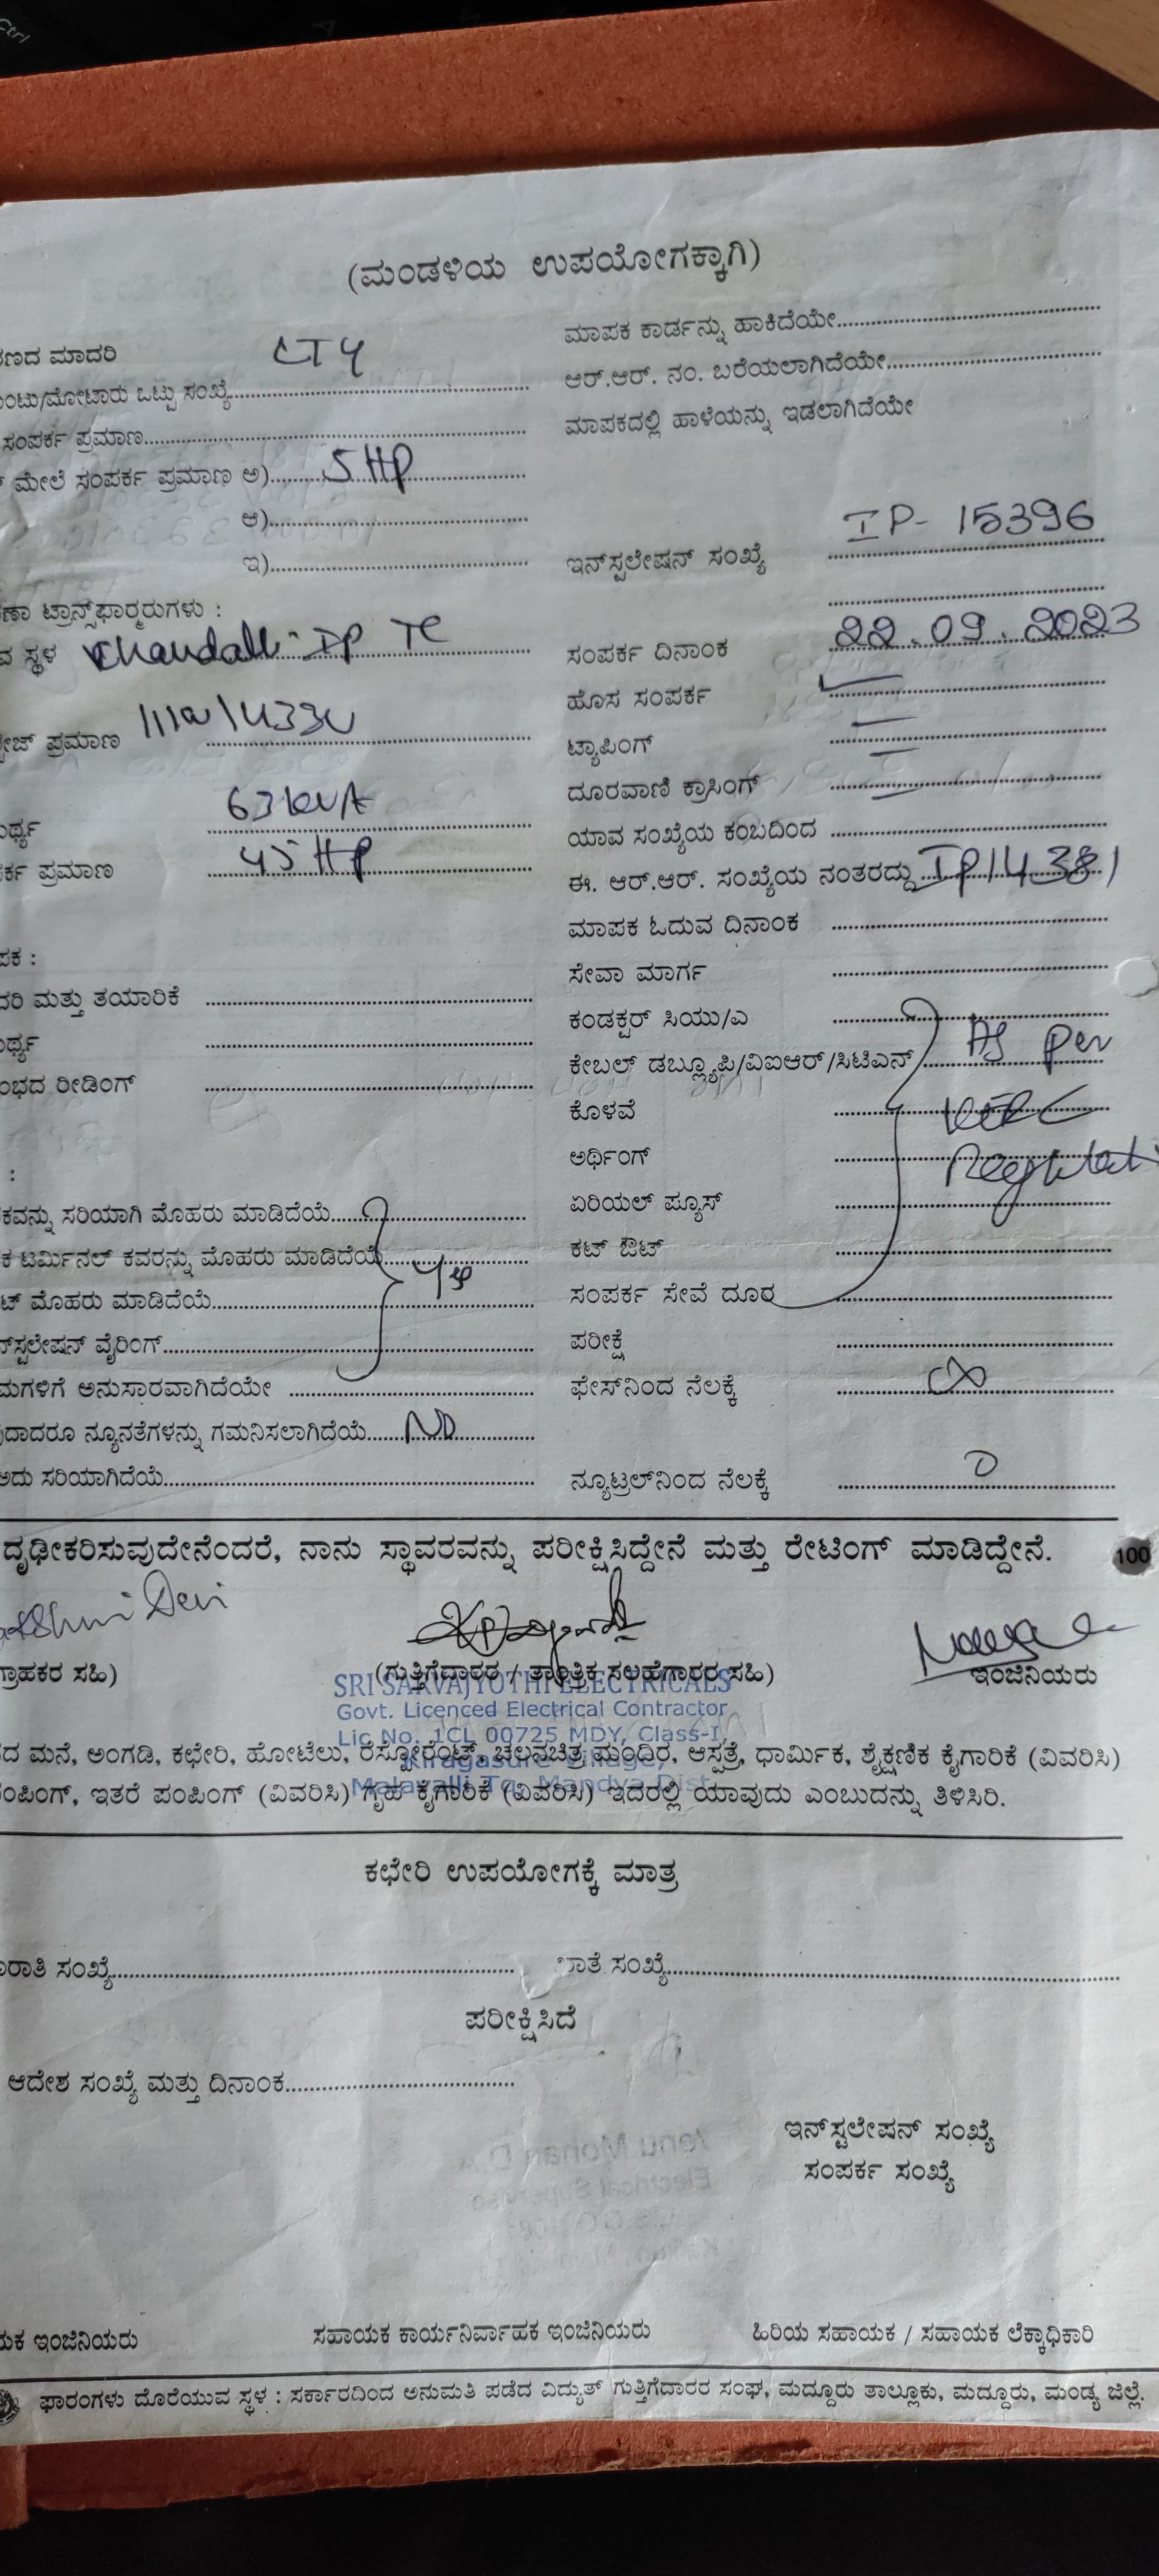 Ctrl
(ಮಂಡಳಿಯ ಉಪಯೋಗಕ್ಕಾಗಿ)
ಣದ ಮಾದರಿ
ಂಟು/ಮೋಟಾರು ಒಟ್ಟು ಸಂಖ್ಯೆ
ಸಂಪರ್ಕ ಪ್ರಮಾಣ
ಮೇಲೆ ಸಂಪರ್ಕ ಪ್ರಮಾಣ ಅ) 5 HP
ಆ)
ಇ)
ಣಾ ಟ್ರಾನ್ಸ್‌ಫಾರ್‍ಮರುಗಳು :
ವ ಸ್ಥಳ Chandalli IP TC
ೇಜ್ ಪ್ರಮಾಣ
ರ್ಥ್ಯ 63 kVA
ರ್ಕ ಪ್ರಮಾಣ 45 HP
ಪಕ :
ದರಿ ಮತ್ತು ತಯಾರಿಕೆ
ರ್ಥ್ಯ
ಂಭದ ರೀಡಿಂಗ್
:
ಕವನ್ನು ಸರಿಯಾಗಿ ಮೊಹರು ಮಾಡಿದೆಯೆ
ಕ ಟರ್ಮಿನಲ್ ಕವರನ್ನು ಮೊಹರು ಮಾಡಿದೆಯೆ
ಟ್ ಮೊಹರು ಮಾಡಿದೆಯೆ
ನ್‌ಸ್ಟಲೇಷನ್ ವೈರಿಂಗ್
ಮಗಳಿಗೆ ಅನುಸಾರವಾಗಿದೆಯೇ
ುದಾದರೂ ನ್ಯೂನತೆಗಳನ್ನು ಗಮನಿಸಲಾಗಿದೆಯೆ NO
ಅದು ಸರಿಯಾಗಿದೆಯೆ
ಮಾಪಕ ಕಾರ್ಡನ್ನು ಹಾಕಿದೆಯೇ
ಆರ್.ಆರ್. ನಂ. ಬರೆಯಲಾಗಿದೆಯೇ
ಮಾಪಕದಲ್ಲಿ ಹಾಳೆಯನ್ನು ಇಡಲಾಗಿದೆಯೇ
ಇನ್‌ಸ್ಟಲೇಷನ್ ಸಂಖ್ಯೆ IP- 15396
ಸಂಪರ್ಕ ದಿನಾಂಕ 22.09.2023
ಹೊಸ ಸಂಪರ್ಕ
ಟ್ಯಾಪಿಂಗ್
ದೂರವಾಣಿ ಕ್ರಾಸಿಂಗ್
ಯಾವ ಸಂಖ್ಯೆಯ ಕಂಬದಿಂದ
ಈ. ಆರ್.ಆರ್. ಸಂಖ್ಯೆಯ ನಂತರದ್ದು IP14381
ಮಾಪಕ ಓದುವ ದಿನಾಂಕ
ಸೇವಾ ಮಾರ್ಗ
ಕಂಡಕ್ಟರ್ ಸಿಯು/ಎ
ಕೇಬಲ್ ಡಬ್ಲ್ಯೂಪಿ/ವಿಐಆರ್/ಸಿಟಿಎನ್ As per
ಕೊಳವೆ
ಅರ್ಥಿಂಗ್
ಏರಿಯಲ್ ಫ್ಯೂಸ್
ಕಟ್ ಔಟ್
ಸಂಪರ್ಕ ಸೇವೆ ದೂರ
ಪರೀಕ್ಷೆ
ಫೇಸ್‌ನಿಂದ ನೆಲಕ್ಕೆ ∞
ನ್ಯೂಟ್ರಲ್‌ನಿಂದ ನೆಲಕ್ಕೆ 0
ದೃಢೀಕರಿಸುವುದೇನೆಂದರೆ, ನಾನು ಸ್ಥಾವರವನ್ನು ಪರೀಕ್ಷಿಸಿದ್ದೇನೆ ಮತ್ತು ರೇಟಿಂಗ್ ಮಾಡಿದ್ದೇನೆ. 100
ಗ್ರಾಹಕರ ಸಹಿ) (ಗುತ್ತಿಗೆದಾರರ / ತಾಂತ್ರಿಕ ಸಲಹೆಗಾರರ ಸಹಿ) ಇಂಜಿನಿಯರು
SRI SARVAJYOTHI ELECTRICALS
Govt. Licenced Electrical Contractor
Lic No. 1CL 00725 MDY, Class-I,
Kiragasuru Village,
Malavalli Tq, Mandya Dist.
ದ ಮನೆ, ಅಂಗಡಿ, ಕಛೇರಿ, ಹೋಟೆಲು, ರೆಸ್ಟೋರೆಂಟ್, ಚಲನಚಿತ್ರ ಮಂದಿರ, ಆಸ್ಪತ್ರೆ, ಧಾರ್ಮಿಕ, ಶೈಕ್ಷಣಿಕ ಕೈಗಾರಿಕೆ (ವಿವರಿಸಿ)
ಂಪಿಂಗ್, ಇತರೆ ಪಂಪಿಂಗ್ (ವಿವರಿಸಿ) ಗೃಹ ಕೈಗಾರಿಕೆ (ವಿವರಿಸಿ) ಇದರಲ್ಲಿ ಯಾವುದು ಎಂಬುದನ್ನು ತಿಳಿಸಿರಿ.
ಕಛೇರಿ ಉಪಯೋಗಕ್ಕೆ ಮಾತ್ರ
ರಾತಿ ಸಂಖ್ಯೆ ಾತೆ ಸಂಖ್ಯೆ
ಪರೀಕ್ಷಿಸಿದೆ
ಆದೇಶ ಸಂಖ್ಯೆ ಮತ್ತು ದಿನಾಂಕ
ಇನ್‌ಸ್ಟಲೇಷನ್ ಸಂಖ್ಯೆ
ಸಂಪರ್ಕ ಸಂಖ್ಯೆ
ಯಕ ಇಂಜಿನಿಯರು ಸಹಾಯಕ ಕಾರ್ಯನಿರ್ವಾಹಕ ಇಂಜಿನಿಯರು ಹಿರಿಯ ಸಹಾಯಕ / ಸಹಾಯಕ ಲೆಕ್ಕಾಧಿಕಾರಿ
ಫಾರಂಗಳು ದೊರೆಯುವ ಸ್ಥಳ : ಸರ್ಕಾರದಿಂದ ಅನುಮತಿ ಪಡೆದ ವಿದ್ಯುತ್ ಗುತ್ತಿಗೆದಾರರ ಸಂಘ, ಮದ್ದೂರು ತಾಲ್ಲೂಕು, ಮದ್ದೂರು, ಮಂಡ್ಯ ಜಿಲ್ಲೆ.